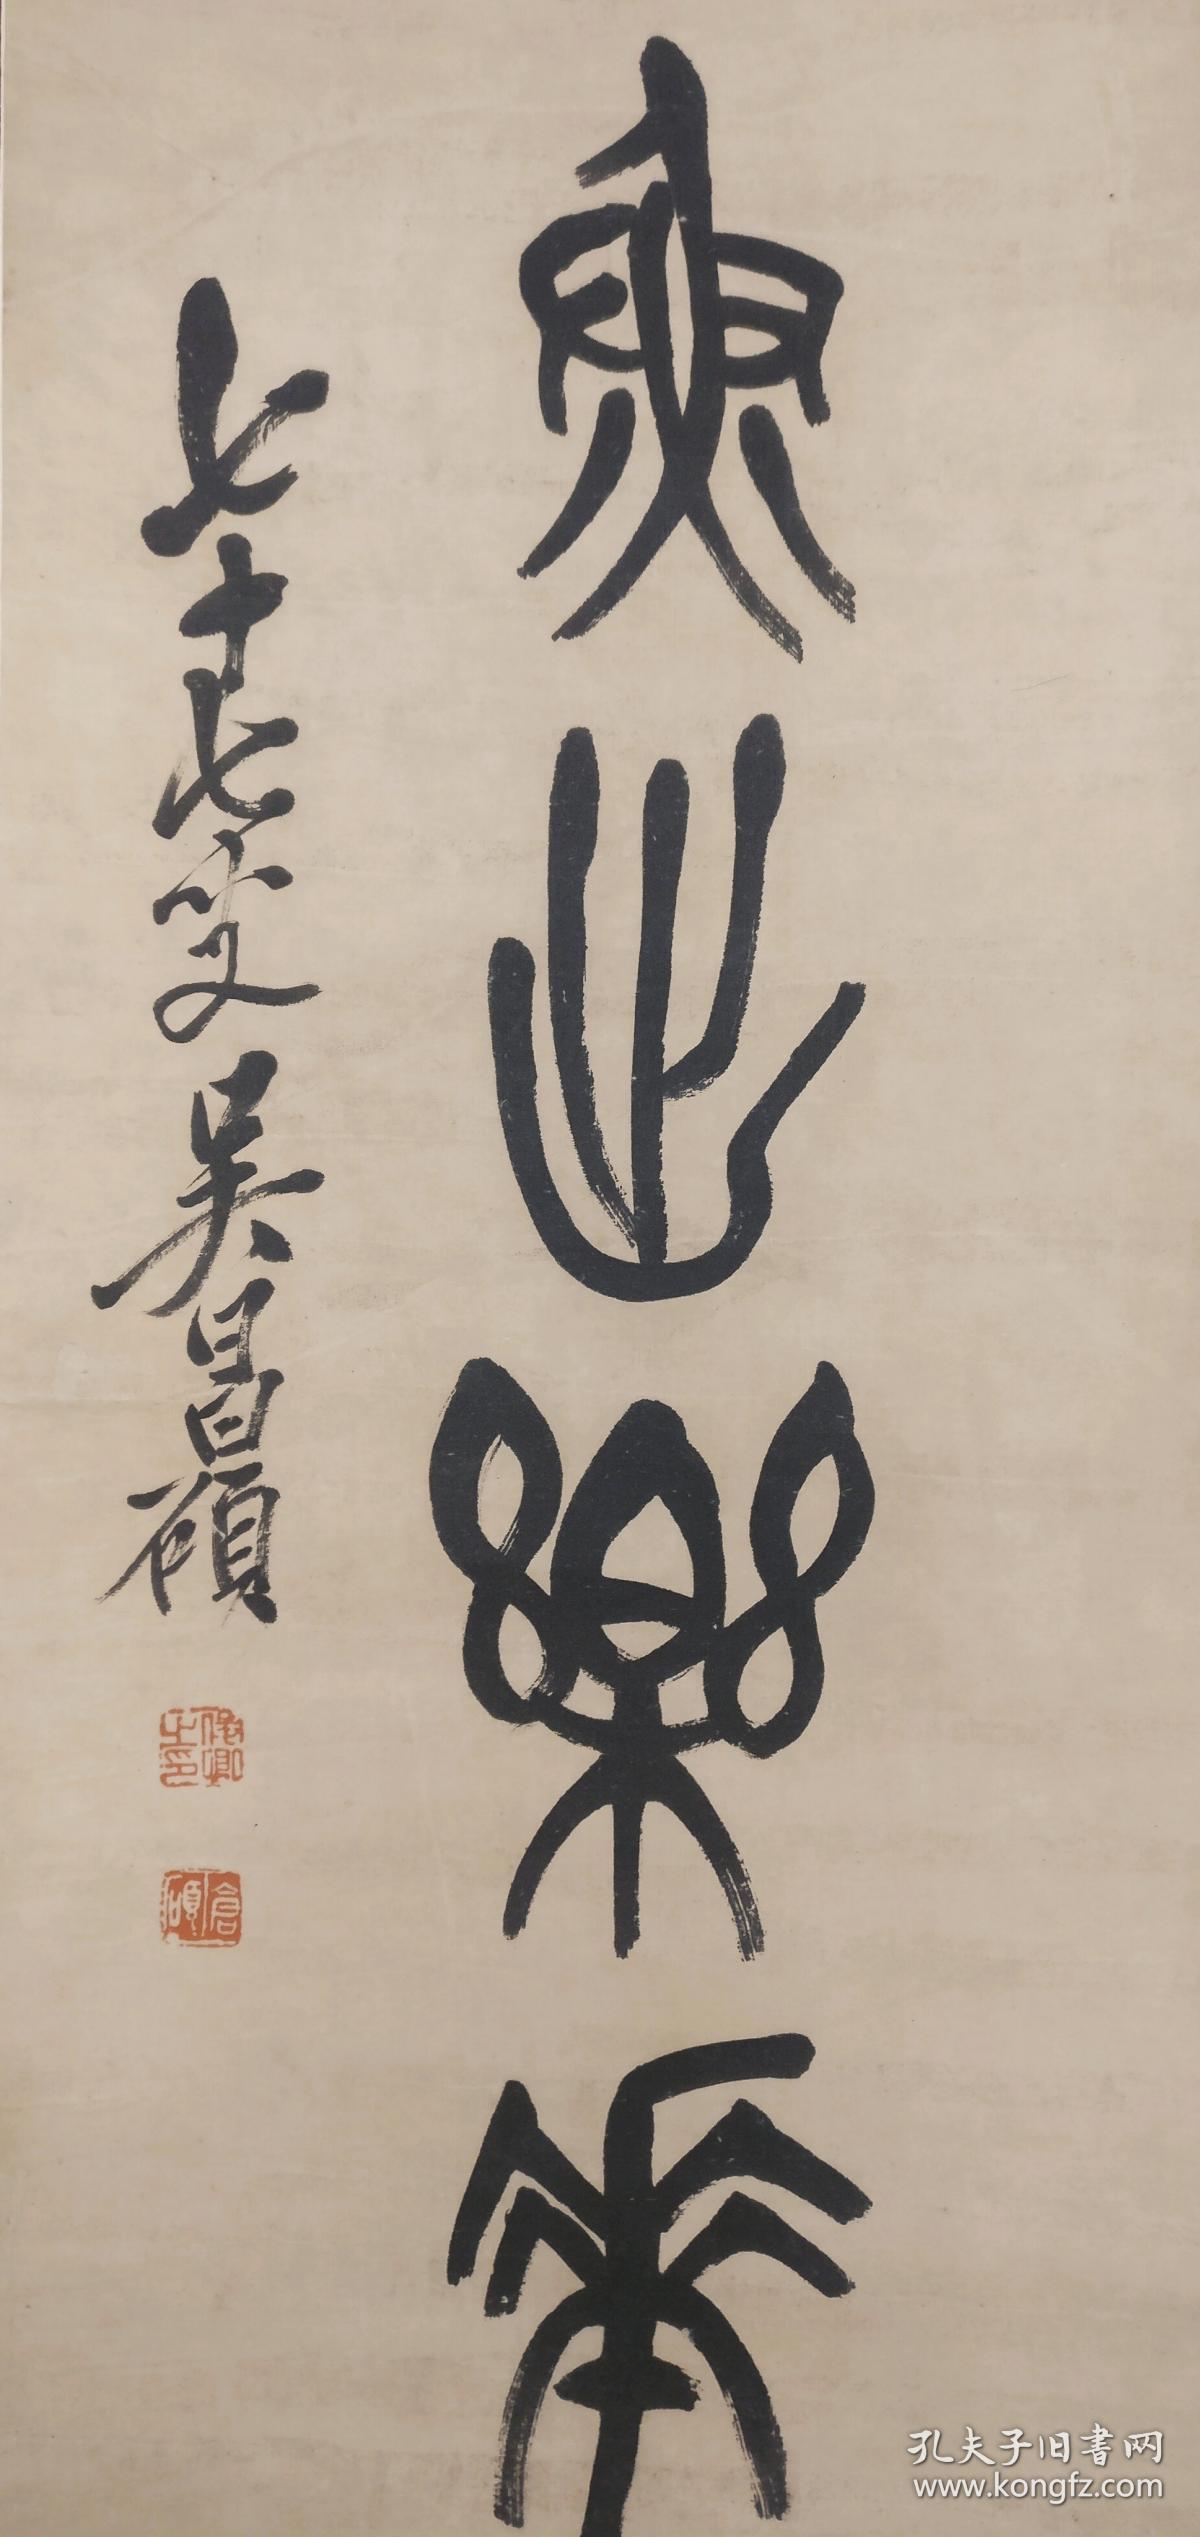 出樂
七十七叟吳昌碩
俊卿之印
倉碩
孔夫子旧書网
www.kongfz.com